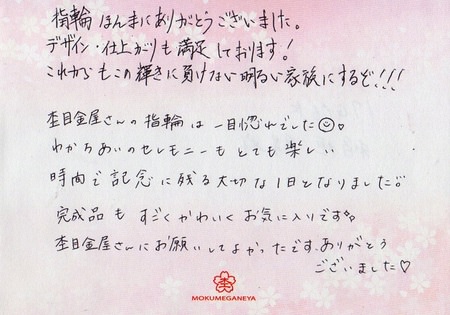 指輪ほんまにありがとうございました。
デザイン・仕上がりも満足しております!
これからもこの輝きに負けない明るい家族にするぞ!!!
杢目金屋さんの指輪は一目惚れでした☺。
わかちあいのセレモニーもとても楽しい
時間で記念に残る大切な1日となりました。
完成品もすごくかわいくお気に入りです。
杢目金屋さんにお願いしてよかったです。ありがとう
ございました♡
杢
MOKUMEGANEYA